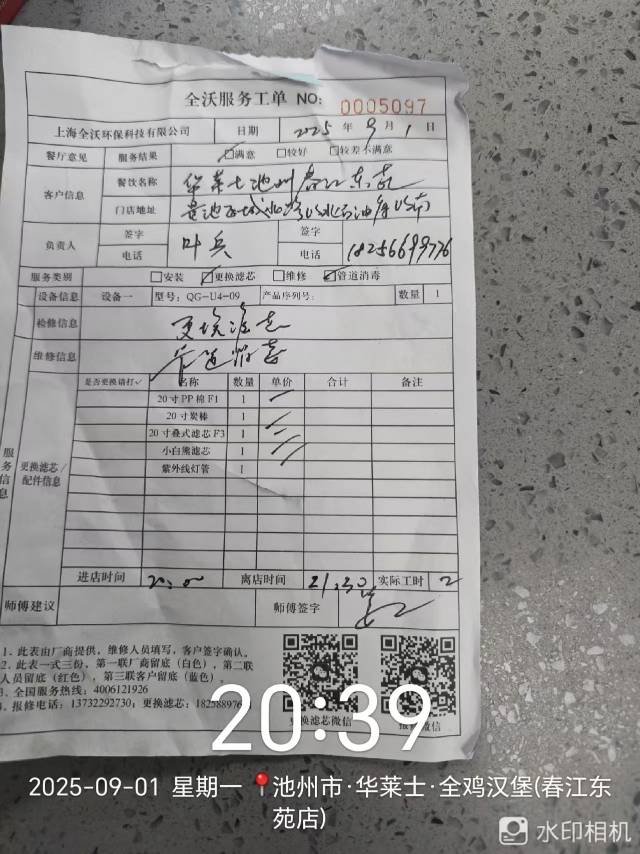 全沃服务工单 NO: 0005097
上海全沃环保科技有限公司 日期 2025 年 9 月 1 日
餐厅意见 服务结果 ☑满意 □较好 □较差不满意
客户信息 餐饮名称 华莱士池州春江东苑
门店地址
负责人 签字 叶兵 签字
电话 电话 18256699776
服务类别 □安装 ☑更换滤芯 □维修 ☑管道消毒
设备信息 设备一 型号: QG-U4-09 产品序列号: 数量 1
检修信息 更换滤芯
维修信息 管道消毒
服务信息 更换滤芯/配件信息 是否更换请打✓ 名称 数量 单价 合计 备注
20寸PP棉F1 1
20寸炭棒 1
20寸叠式滤芯F3 1
小白熊滤芯 1
紫外线灯管 1
进店时间 20:00 离店时间 21:30 实际工时 2
师傅建议 师傅签字
1. 此表由厂商提供，维修人员填写，客户签字确认。
2. 此表一式三份，第一联厂商留底（白色），第二联
人员留底（红色），第三联客户留底（蓝色）。
3. 全国服务热线: 4006121926
4. 报修电话: 13732292730; 更换滤芯: 182588976
更换滤芯微信 报修微信
20:39
2025-09-01 星期一 池州市·华莱士·全鸡汉堡(春江东
苑店)
水印相机